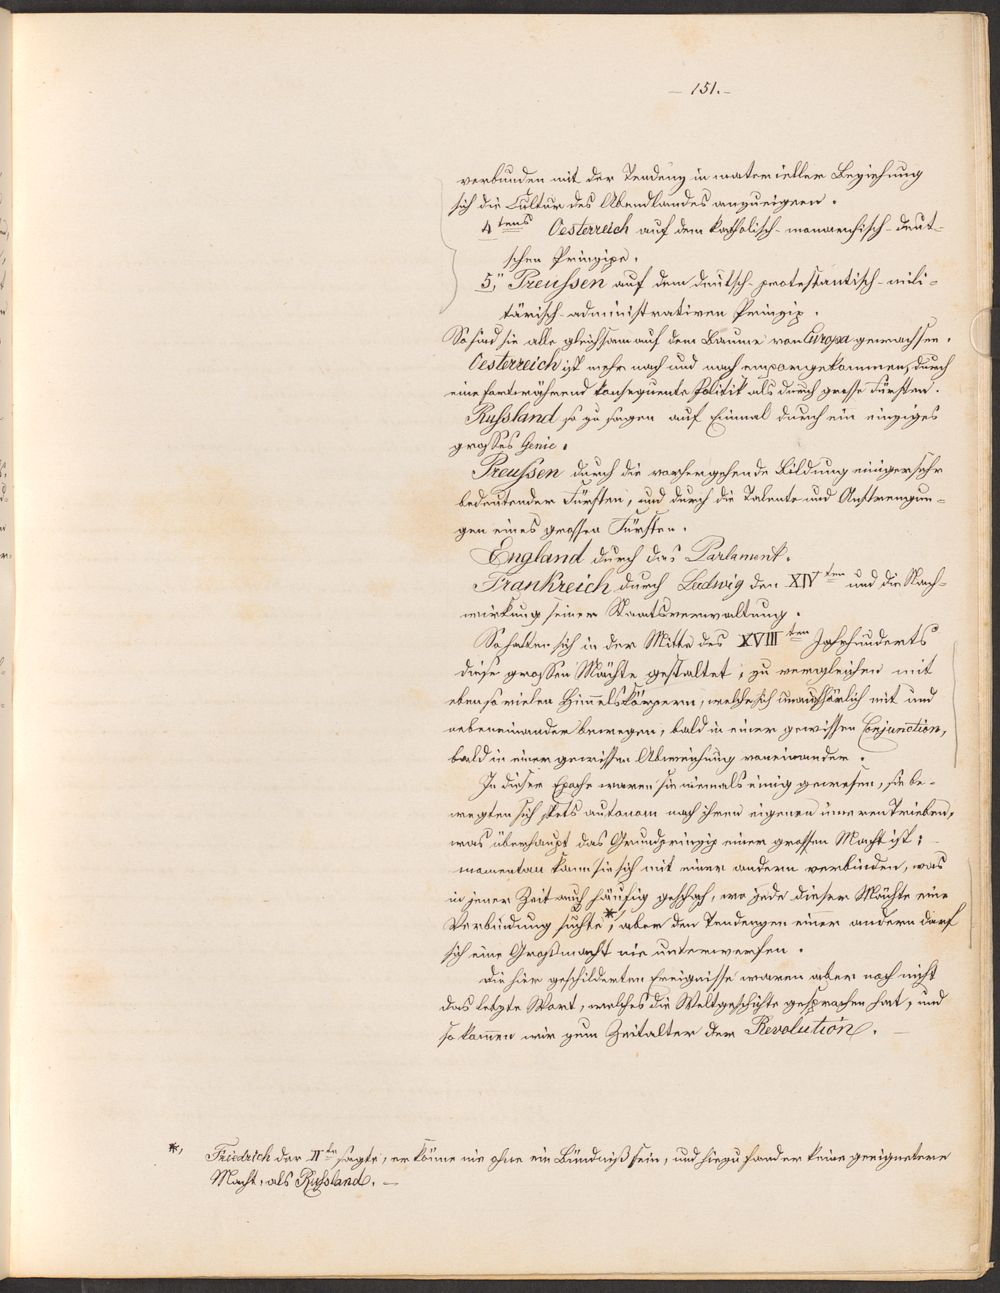 – 151. –
verbunden mit der Tendenz in materieller Beziehung
sich die Cultur des Abendlandes anzueignen.
4tens Oesterreich auf dem katholisch-monarchisch-deut-
schen Prinzipe.
5,, Preussen auf dem deutsch-protestantisch-mili-
tärisch-administrativen Prinzip.
So sind sie alle gleichsam auf dem Baume von Europa gewachsen.
Oesterreich ist mehr nach und nach emporgekommen, durch
eine fortwährend konsequente Politik als durch grosse Fürsten.
Russland so zu sagen auf Einmal durch ein einziges
grosses Genie.
Preussen durch die vorhergehende Bildung einiger sehr
bedeutender Fürsten, und durch die Talente und Anstrengun-
gen eines grossen Fürsten.
England durch das Parlament.
Frankreich durch Ludwig den XIVten und die Nach-
wirkung seiner Staatsverwaltung.
So hatten sich in der Mitte des XVIIIten Jahrhunderts
diese grossen Mächte gestaltet, zu vergleichen mit
eben so vielen Him̅elskörpern, welche sich unaufhörlich mit und
nebeneinander bewegen, bald in einer gewissen Conjunction,
bald in einer gewissen Abweichung voneinander.
In dieser Epoche waren sie niemals einig gewesen, sie be-
wegten sich stets autonom nach ihren eigenen inneren Trieben,
was überhaupt das Grundprinzip einer grossen Macht ist;
momentan kann sie sich mit einer andern verbinden, was
in jener Zeit auch häufig geschah, wo jede dieser Mächte eine
Verbindung suchte *, aber den Tendenzen einer andern darf
sich eine Großmacht nie unterwerfen.
Die hier geschilderten Ereignisse waren aber noch nicht
das letzte Wort, welches die Weltgeschichte gesprochen hat, und
so kom̅en wir zum Zeitalter der Revolution. –
*, Friedrich der IIte sagte, er könne nie ohne ein Bündniß sein, und hiezu fand er keine geeignetere
Macht, als Russland. –